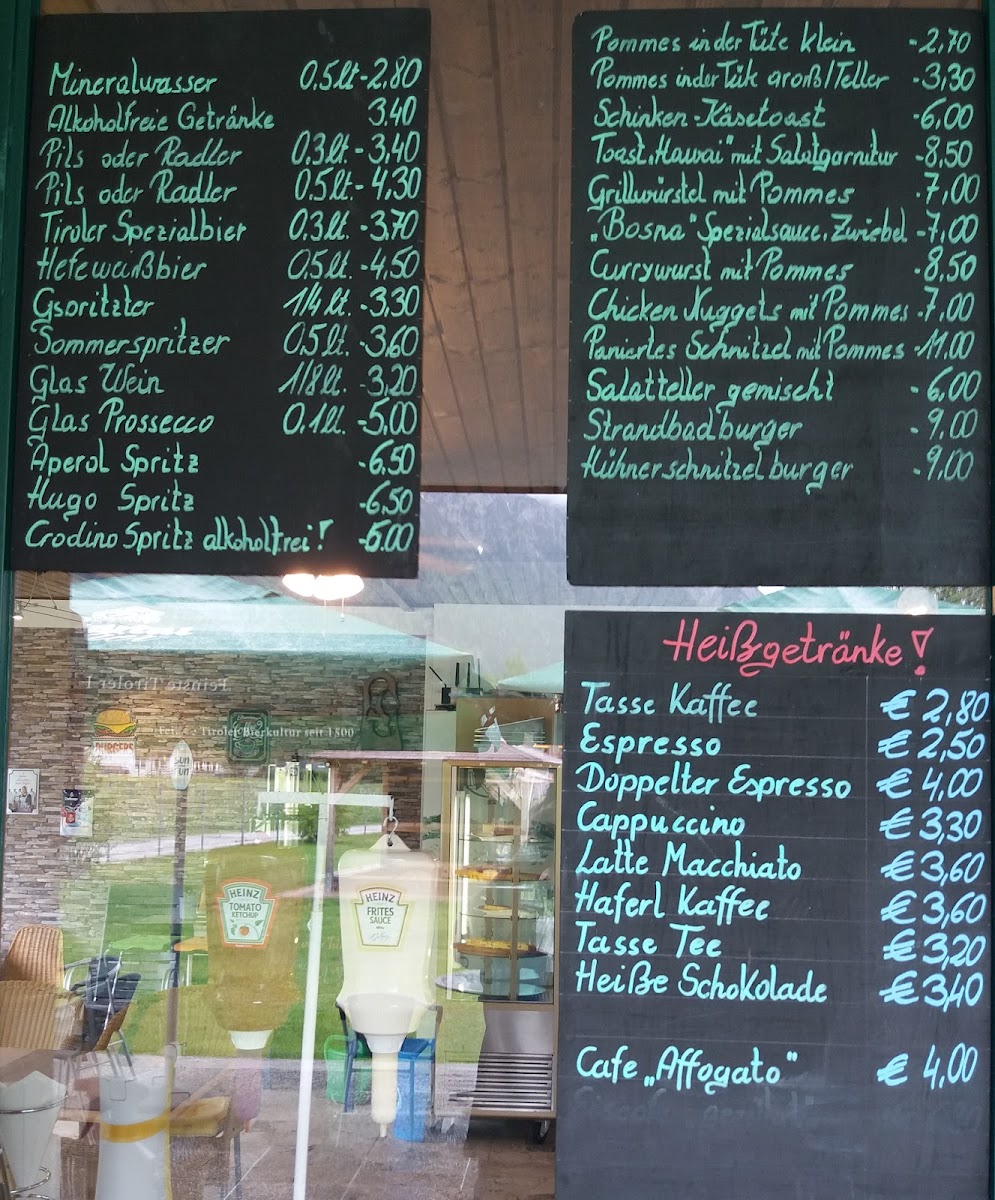 Mineralwasser 0.5lt - 2,80
Alkoholfreie Getränke 3,40
Pils oder Radler 0.3lt. - 3,40
Pils oder Radler 0.5lt. - 4,30
Tiroler Spezialbier 0.3lt. - 3,70
Hefeweißbier 0.5lt. - 4,50
Gspritzter 1/4 lt. - 3,30
Sommerspritzer 0.5lt. - 3,60
Glas Wein 1/8 lt. - 3,20
Glas Prossecco 0.1lt. - 5,00
Aperol Spritz - 6,50
Hugo Spritz - 6,50
Crodino Spritz alkoholfrei! - 5.00
Pommes in der Tüte klein - 2,70
Pommes in der Tüte groß/Teller - 3,30
Schinken-Käsetoast - 6,00
Toast „Hawai" mit Salatgarnitur - 8,50
Grillwürstel mit Pommes - 7,00
„Bosna" Spezialsauce, Zwiebel - 7,00
Currywurst mit Pommes - 8,50
Chicken Nuggets mit Pommes - 7,00
Paniertes Schnitzel mit Pommes - 11,00
Salatteller gemischt - 6,00
Strandbadburger - 9,00
Hühnerschnitzelburger - 9,00
Heißgetränke!
Tasse Kaffee € 2,80
Espresso € 2,50
Doppelter Espresso € 4,00
Cappuccino € 3,30
Latte Macchiato € 3,60
Haferl Kaffee € 3,60
Tasse Tee € 3,20
Heiße Schokolade € 3,40
Cafe „Affogato" € 4,00
Feinste Tiroler
Tiroler Bierkultur seit 1500
BURGERS
HEINZ
TOMATO
KETCHUP
HEINZ
FRITES
SAUCE